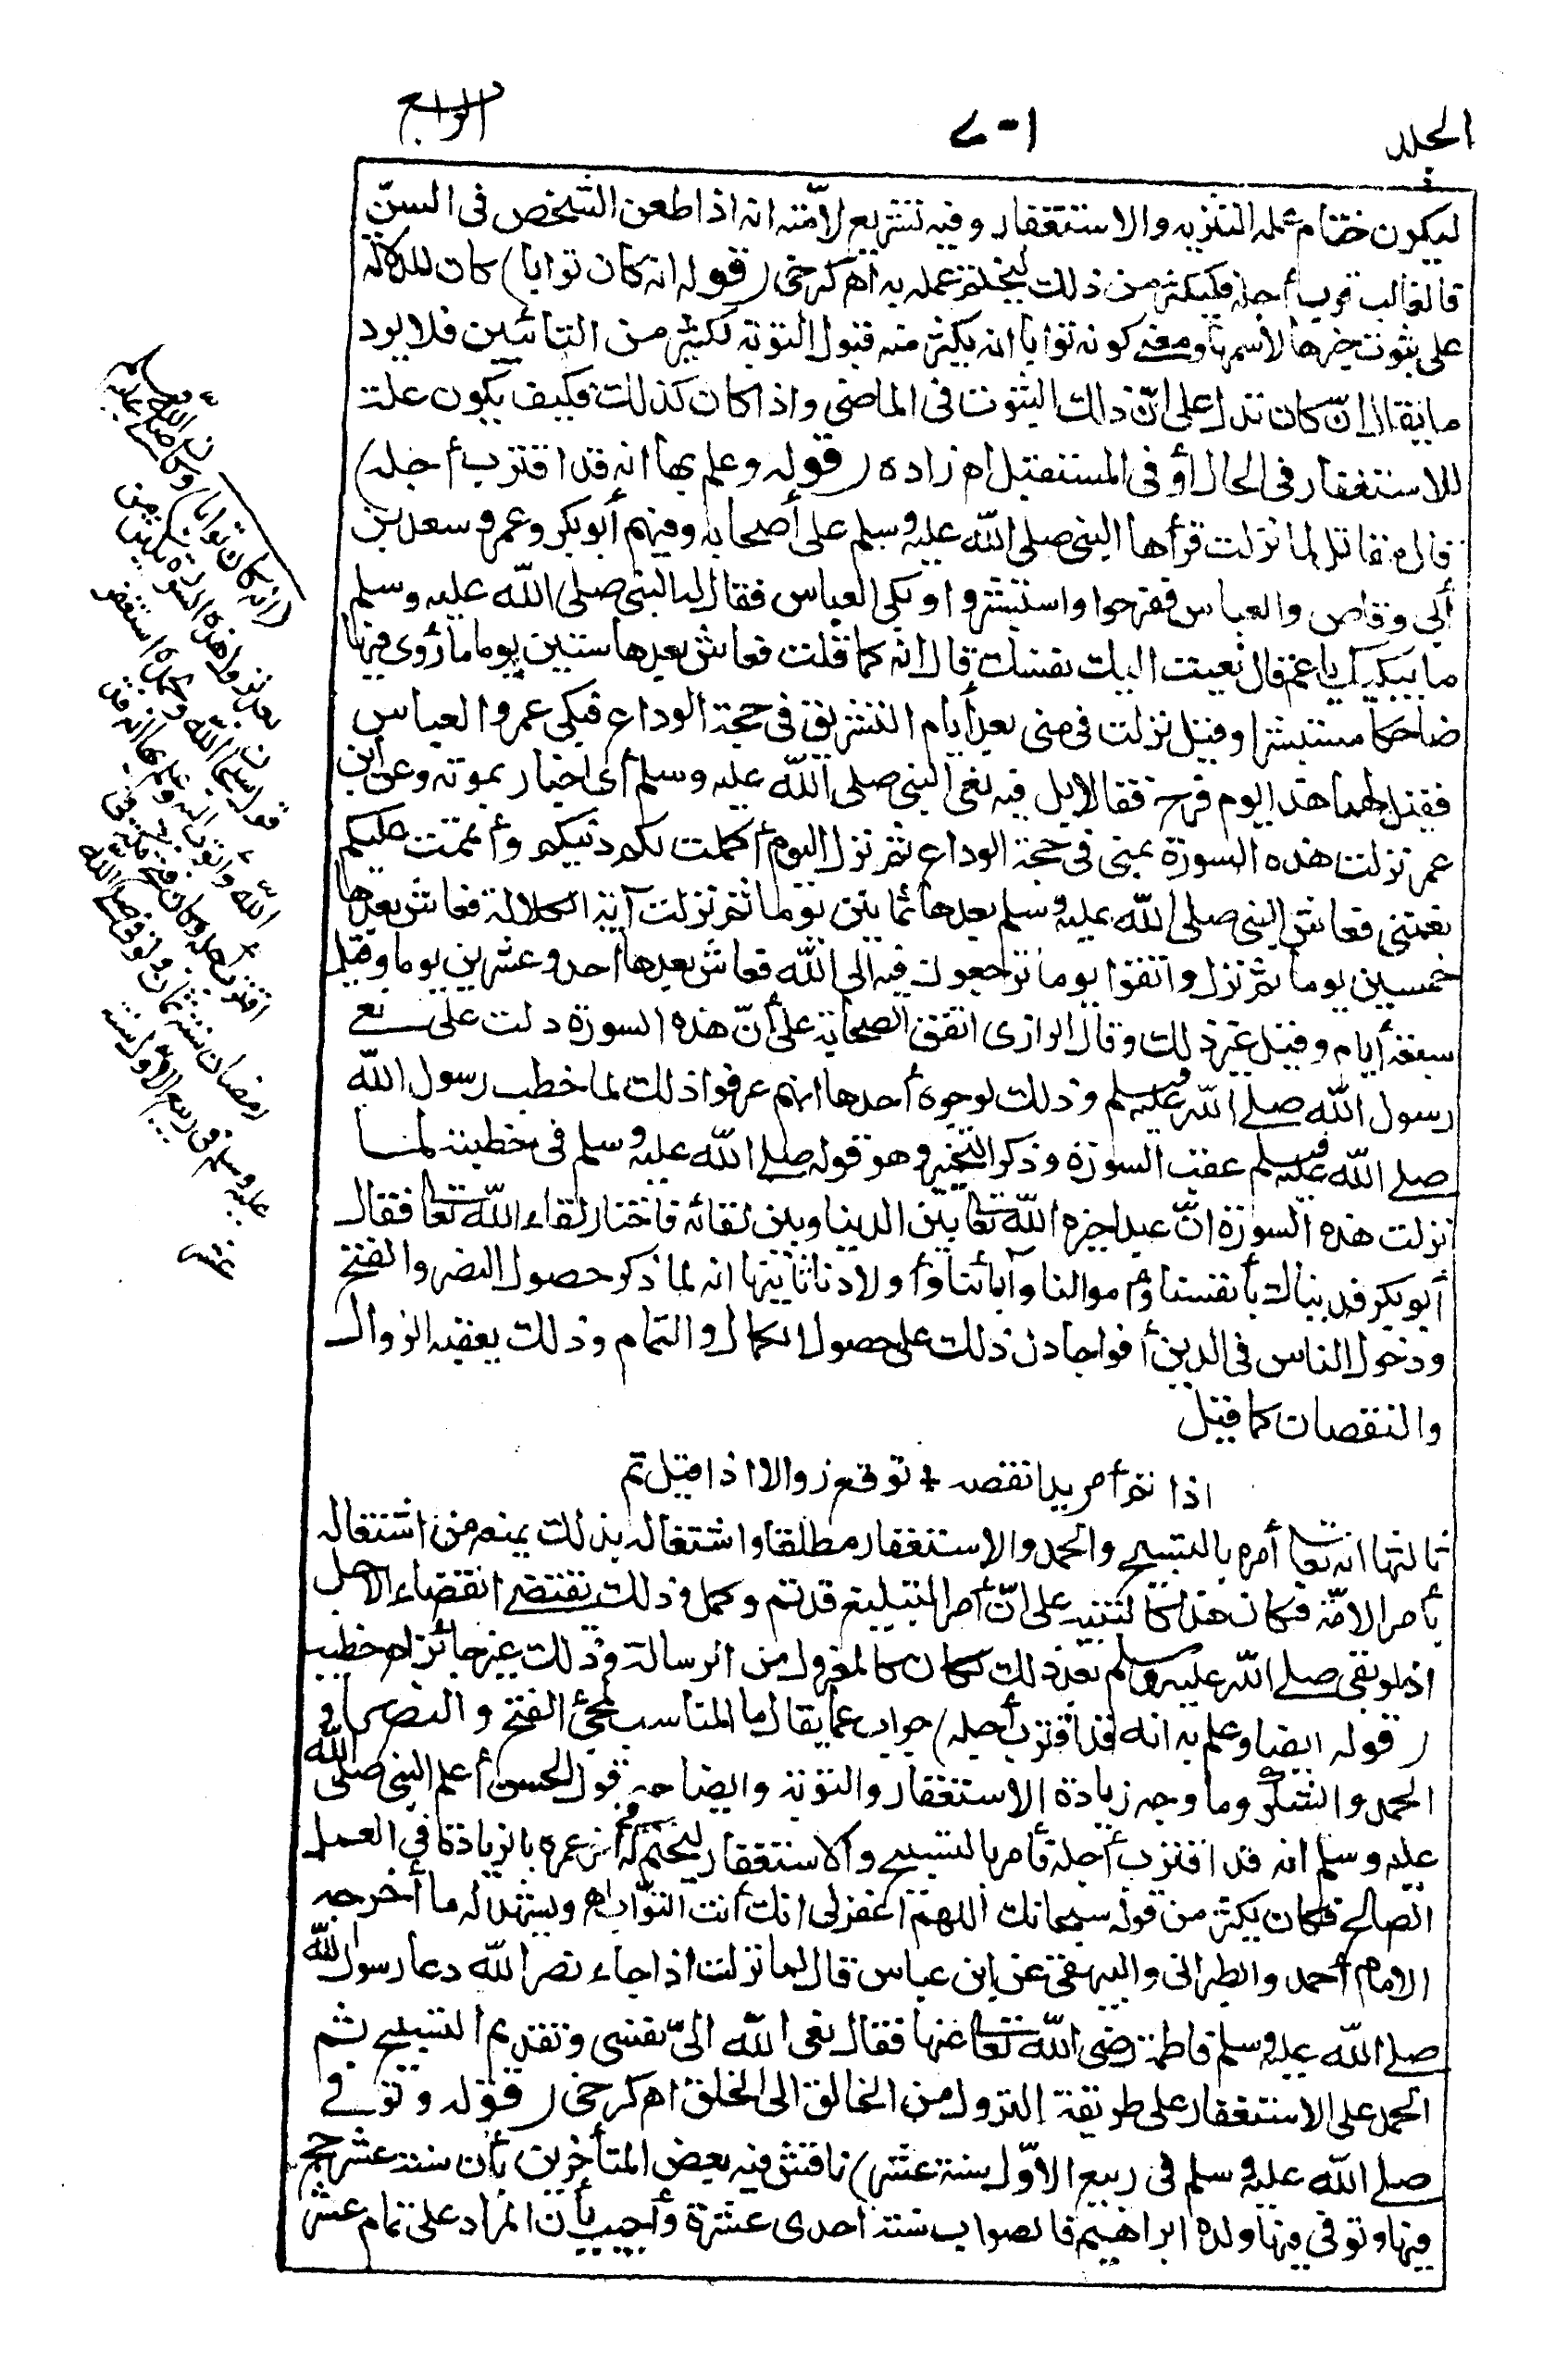 الجلد
٧٠١
الرابع
ليكون ختام عمله التنزيه والاستغفار وفيه تشريع لأمته انه اذا طعن الشخص فى السنّ
فالغالب قرب أجله فيكثر من ذلك ليختم عمله به اه كرخى (قوله انه كان توابا) كان للدلالة
على ثبوت خبرها لاسمها ومعنى كونه توابا انه يكثر منه قبول التوبة لكثير من التائبين فلا يرد
ما يقال انّ كان تدل على انّ ذلك الثبوت فى الماضى واذا كان كذلك فكيف يكون علة
للاستغفار فى الحال أو فى المستقبل اه زاده (قوله وعلم بها انه قد اقترب أجله)
قال مقاتل لما نزلت قرأها النبى صلى الله عليه وسلم على أصحابه وفيهم أبو بكر وعمر وسعد بن
أبى وقاص والعباس ففرحوا واستبشروا وبكى العباس فقال له النبى صلى الله عليه وسلم
ما يبكيك يا عم قال نعيت اليك نفسك قال انه كما قلت فعاش بعدها ستين يوما ما رؤى فيها
ضاحكا مستبشرا وقيل نزلت فى منى بعد أيام التشريق فى حجة الوداع فبكى عمر والعباس
فقيل لهما هذا يوم فرح فقالا بل فيه نعى النبى صلى الله عليه وسلم أى اخبار بموته وعن ابن
عمر نزلت هذه السورة بمنى فى حجة الوداع ثم نزل اليوم أكملت لكم دينكم وأتممت عليكم
نعمتى فعاش النبى صلى الله عليه وسلم بعدها ثمانين يوما ثم نزلت آية الكلالة فعاش بعدها
خمسين يوما ثم نزل واتقوا يوما ترجعون فيه الى الله فعاش بعدها احد وعشرين يوما وقيل
سبعة أيام وقيل غير ذلك وقال الرازى اتفق الصحابة على أنّ هذه السورة دلت على نعى
رسول الله صلى الله عليه وسلم وذلك لوجوه أحدها انهم عرفوا ذلك لما خطب رسول الله
صلى الله عليه وسلم عقب السورة وذكر التخيير وهو قوله صلى الله عليه وسلم فى خطبته لما
نزلت هذه السورة انّ عبدا خيره الله تعا بين الدنيا وبين لقائه فاختار لقاء الله تعا فقال
أبو بكر فديناك بأنفسنا وأموالنا وآبائنا وأولادنا ثانيها انه لما ذكر حصول النصر والفتح
ودخول الناس فى الدين أفواجا دل ذلك على حصول الكمال والتمام وذلك يعقبه الزوال
والنقصان كما قيل
اذا تم أمر بدا نقصه ٭ توقع زوالا اذا قيل تم
ثالثها انه تعا أمره بالتسبيح والحمد والاستغفار مطلقا واشتغاله بذلك يمنعه من اشتغاله
بأمر الامّة فكان هذا كالتنبيه على انّ أمر التبليغ قد تم وكمل وذلك يقتضى انقضاء الاجل
اذ لو بقى صلى الله عليه وسلم بعد ذلك لكان كالمعزول من الرسالة وذلك غير جائز اه خطيب
(قوله ايضا وعلم به انه قد اقترب أجله) جواب عما يقال ما المناسب لمجئ الفتح والنصر انما هو
الحمد والشكر وما وجه زيادة الاستغفار والتوبة وايضاحه قول الحسن أعلم النبى صلى الله
عليه وسلم انه قد اقترب أجله فأمر بالتسبيح والاستغفار ليختم له فى آخر عمره بالزيادة فى العمل
الصالح فكان يكثر من قوله سبحانك اللهم اغفر لى انك أنت التوّاب اه ويشهد له ما أخرجه
الامام أحمد والطبرانى والبيهقى عن ابن عباس قال لما نزلت اذا جاء نصر الله دعا رسول الله
صلى الله عليه وسلم فاطمة رضى الله تعا عنها فقال نعى الله الىّ نفسى وتقديم التسبيح ثم
الحمد على الاستغفار على طريقة النزول من الخالق الى الخلق اه كرخى (قوله وتوفى
صلى الله عليه وسلم فى ربيع الاوّل سنة عشر) ناقش فيه بعض المتأخرين بأن سنة عشر حج
فيها وتوفى فيها ولده ابراهيم فالصواب سنة احدى عشرة وأجيب بأن المراد على تمام عشر
(انه كان توابا) وكان صلى الله عليه وسلم
بعد نزول هذه السورة يكثر من
قول سبحان الله وبحمده استغفر
الله وأتوب اليه وعلم بها انه قد
اقترب أجله وكان فتح مكة فى
رمضان سنة ثمان وتوفى صلى الله
عليه وسلم فى ربيع الاوّل سنة
عشر